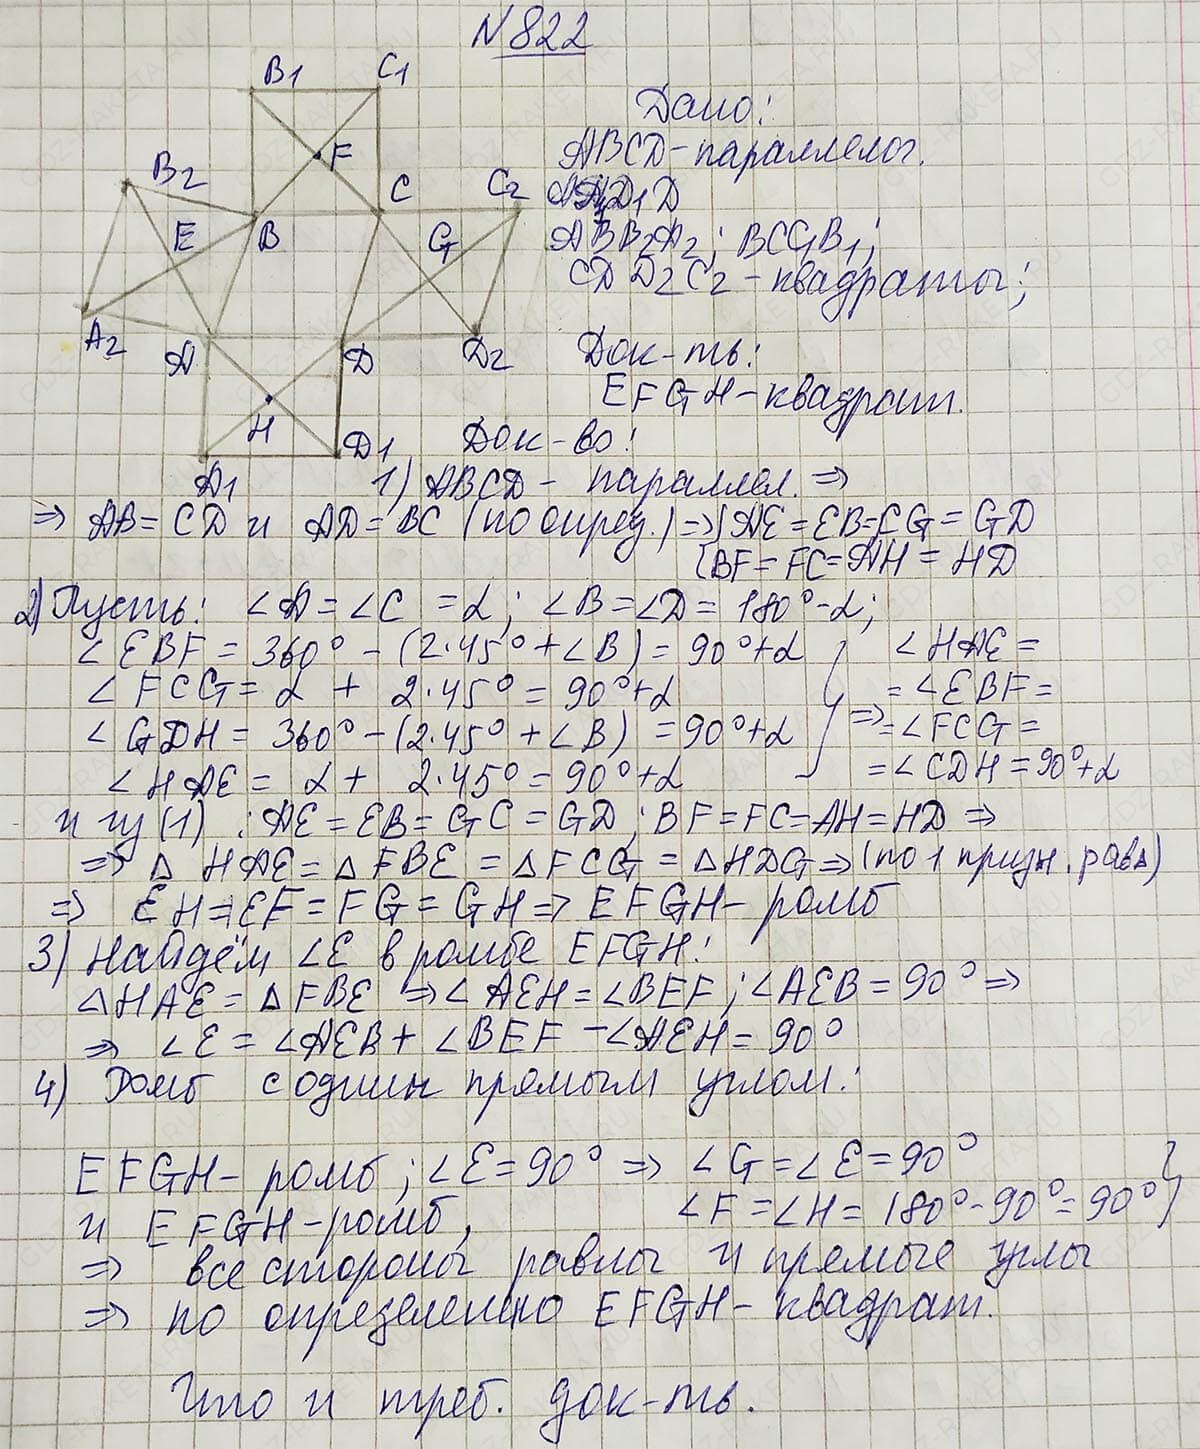 N 822
B1 C1
F
B2 C C2
E B G
A2 A D D2
H D1
A1
Дано:
ABCD - параллелог.
AA1D1D
ABB2A2; BCC1B1;
CDD2C2 - квадраты;
Док-ть:
EFGH - квадрат.
Док-во:
1) ABCD - параллел. ⇒
⇒ AB = CD и AD = BC (по опред.) ⇒ { AE = EB = CG = GD
{ BF = FC = AH = HD
2) Пусть: ∠A = ∠C = α; ∠B = ∠D = 180° - α;
∠EBF = 360° - (2·45° + ∠B) = 90° + α } ∠HAE =
∠FCG = α + 2·45° = 90° + α = ∠EBF =
∠GDH = 360° - (2·45° + ∠B) = 90° + α ⇒ = ∠FCG =
∠HAE = α + 2·45° = 90° + α = ∠CDH = 90° + α
и из (1) : AE = EB = GC = GD; BF = FC = AH = HD ⇒
⇒ △HAE = △FBE = △FCG = △HDG ⇒ (по 1 призн. рав△)
⇒ EH = EF = FG = GH ⇒ EFGH - ромб
3) Найдём ∠E в ромбе EFGH:
△HAE = △FBE ⇒ ∠AEH = ∠BEF; ∠AEB = 90° ⇒
⇒ ∠E = ∠AEB + ∠BEF - ∠AEH = 90°
4) Ромб с одним прямым углом:
EFGH - ромб; ∠E = 90° ⇒ ∠G = ∠E = 90° }
и EFGH - ромб, ∠F = ∠H = 180° - 90° = 90°
⇒ все стороны равны и прямые углы
⇒ по определению EFGH - квадрат.
Что и треб. док-ть.